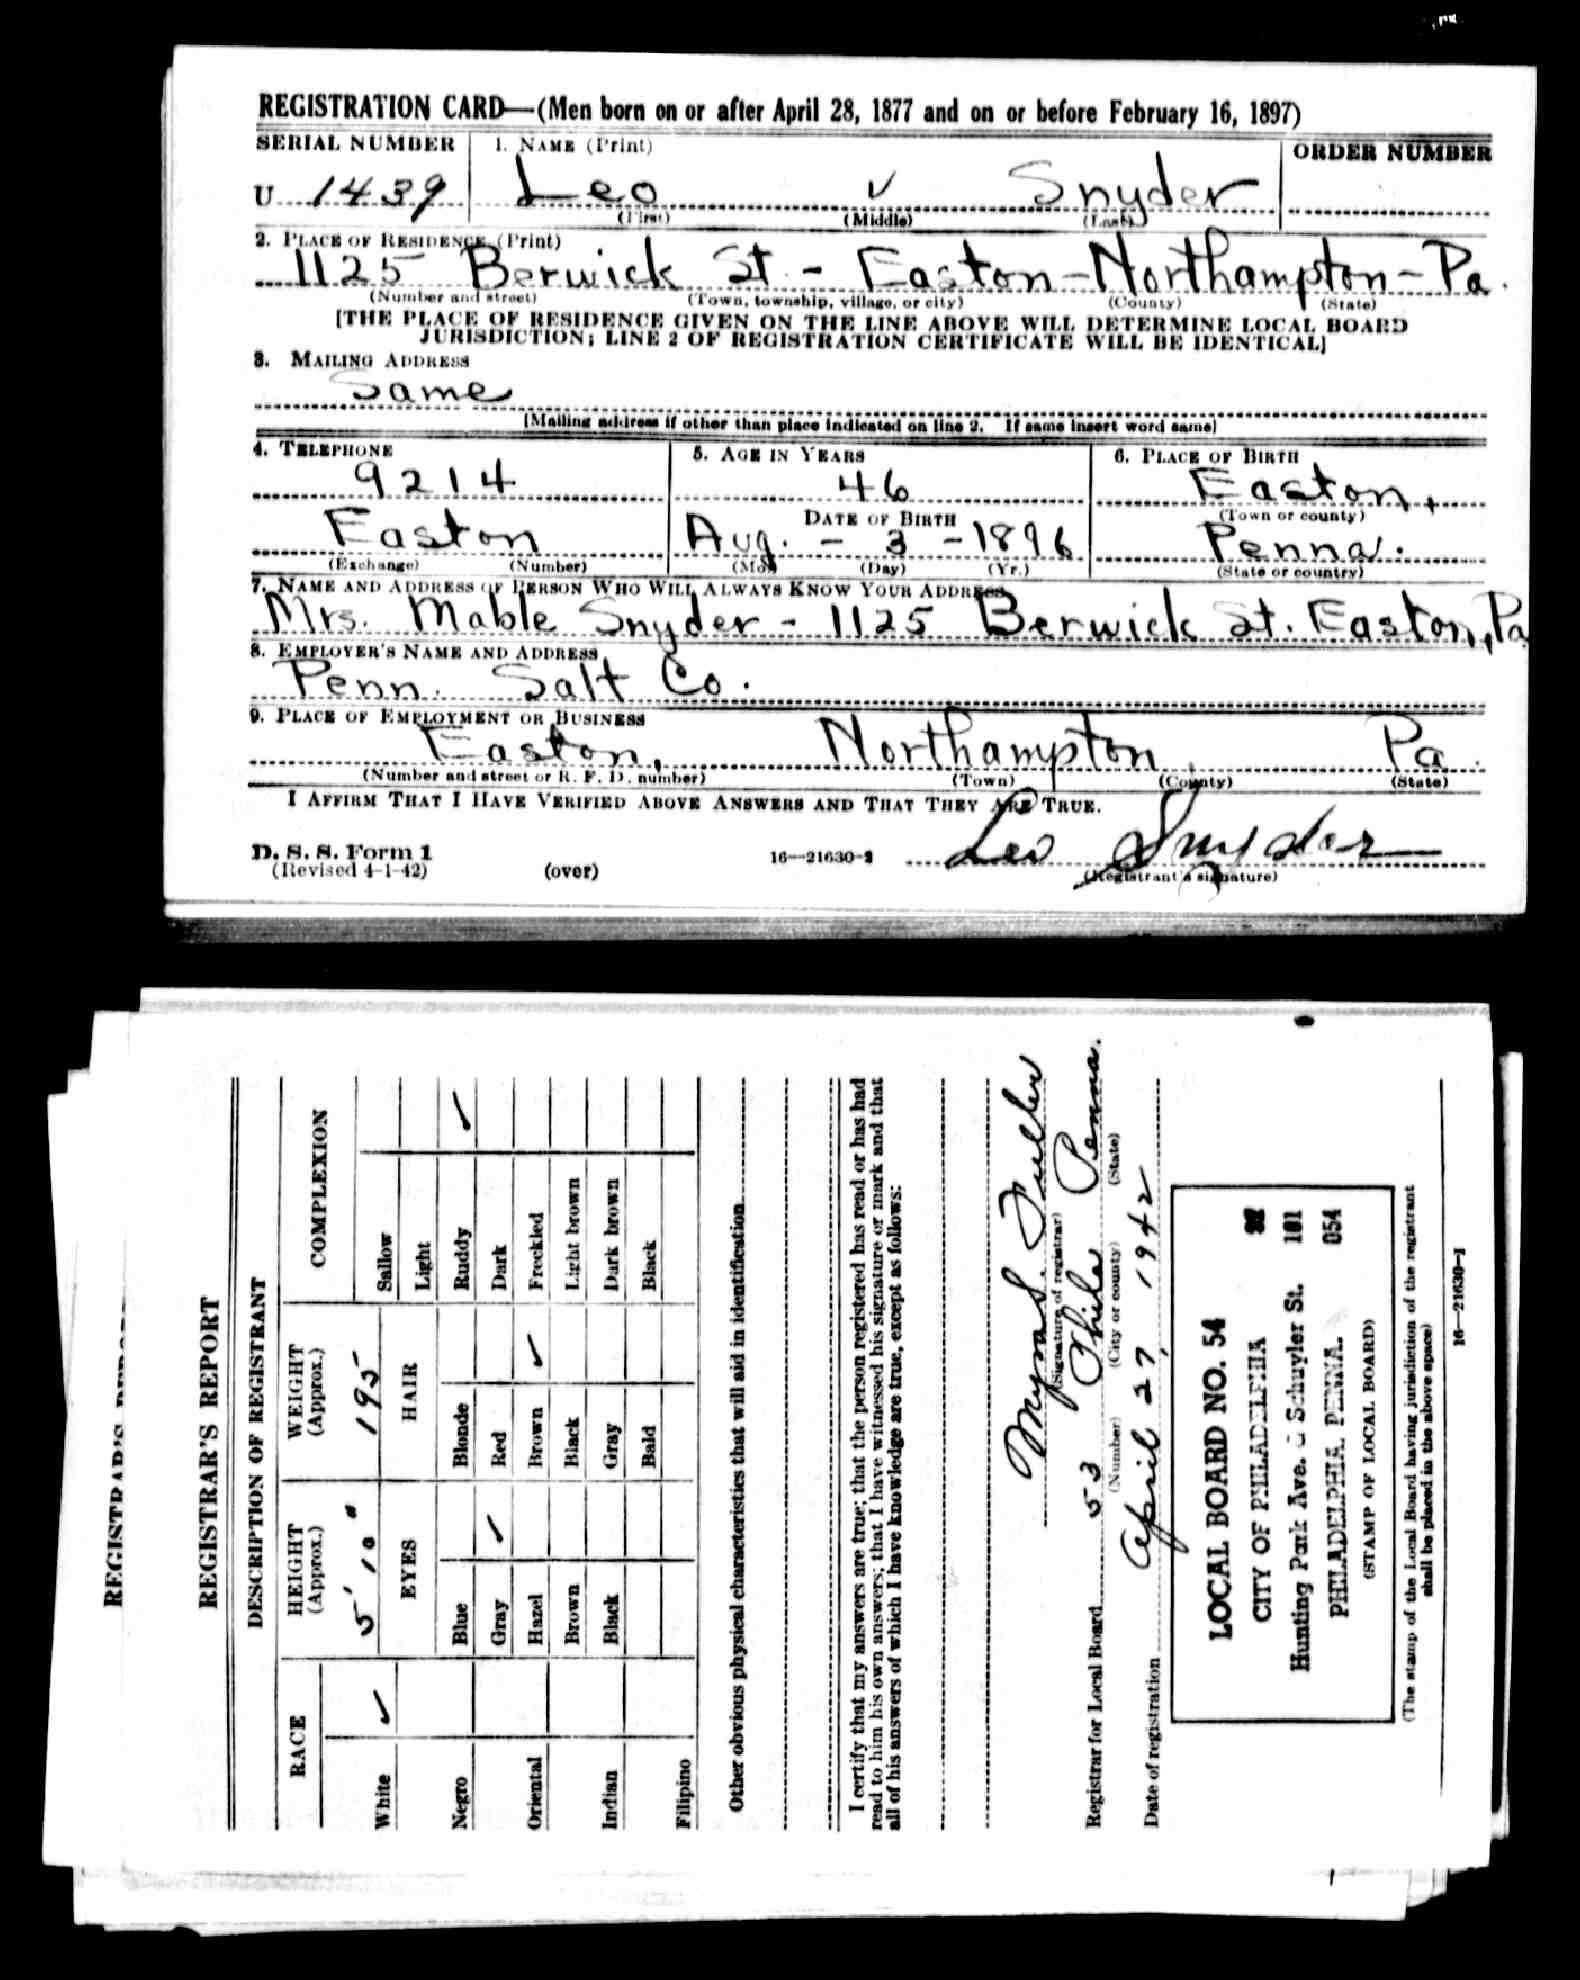 REGISTRATION CARD—(Men born on or after April 28, 1877 and on or before February 16, 1897)
SERIAL NUMBER
1. NAME (Print)
ORDER NUMBER
U 1439
Leo V Snyder
(First) (Middle) (Last)
2. PLACE OF RESIDENCE (Print)
1125 Berwick St. - Easton - Northampton - Pa.
(Number and street) (Town, township, village, or city) (County) (State)
[THE PLACE OF RESIDENCE GIVEN ON THE LINE ABOVE WILL DETERMINE LOCAL BOARD
JURISDICTION; LINE 2 OF REGISTRATION CERTIFICATE WILL BE IDENTICAL]
3. MAILING ADDRESS
Same
[Mailing address if other than place indicated on line 2. If same insert word same]
4. TELEPHONE
5. AGE IN YEARS
6. PLACE OF BIRTH
9214
46
Easton,
DATE OF BIRTH
(Town or county)
Easton
Aug. - 3 - 1896
Penna.
(Exchange) (Number)
(Mo.) (Day) (Yr.)
(State or country)
7. NAME AND ADDRESS OF PERSON WHO WILL ALWAYS KNOW YOUR ADDRESS
Mrs. Mable Snyder - 1125 Berwick St. Easton, Pa
8. EMPLOYER'S NAME AND ADDRESS
Penn. Salt Co.
9. PLACE OF EMPLOYMENT OR BUSINESS
Easton, Northampton, Pa.
(Number and street or R. F. D. number) (Town) (County) (State)
I AFFIRM THAT I HAVE VERIFIED ABOVE ANSWERS AND THAT THEY ARE TRUE.
Leo Snyder
D. S. S. Form 1
(Revised 4-1-42)
(over)
16—21630-2
(Registrant's signature)
REGISTRAR'S REPORT
REGISTRAR'S REPORT
DESCRIPTION OF REGISTRANT
RACE
HEIGHT (Approx.)
WEIGHT (Approx.)
COMPLEXION
5' 10"
195
White ✓
EYES
HAIR
Sallow
Light
Negro
Blue
Blonde
Ruddy ✓
Gray ✓
Red
Dark
Oriental
Hazel
Brown ✓
Freckled
Brown
Black
Light brown
Indian
Black
Gray
Dark brown
Bald
Black
Filipino
Other obvious physical characteristics that will aid in identification
I certify that my answers are true; that the person registered has read or has had
read to him his own answers; that I have witnessed his signature or mark and that
all of his answers of which I have knowledge are true, except as follows:
(Signature of registrar)
Registrar for Local Board 53 Phila Penna.
(Number) (City or county) (State)
Date of registration April 27, 1942
LOCAL BOARD NO. 54
CITY OF PHILADELPHIA
101
Hunting Park Ave. & Schuyler St.
054
PHILADELPHIA, PENNA.
(STAMP OF LOCAL BOARD)
(The stamp of the Local Board having jurisdiction of the registrant
shall be placed in the above space)
16—21630-1